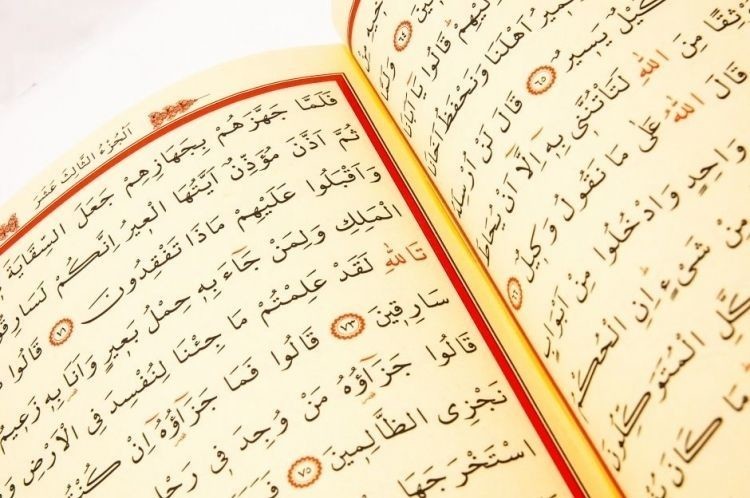 ٦٤
اِلَيْهِمْ قَالُوا يَٓا اَبَانَا
اَهْلَنَا وَنَحْفَظُ
كَيْلٌ يَسِيرٌ ٦٥ قَالَ لَنْ
مِنَ اللهِ لَتَأْتُنَّنِى بِهٖٓ اِلَّٓا اَنْ يُحَاطَ
قَالَ اللهُ عَلٰى مَا نَقُولُ وَكِيلٌ ٦٦
وَاحِدٍ وَادْخُلُوا مِنْ اَبْوَابٍ
مِنْ شَىْءٍ اِنِ الْحُكْمُ
الْمُتَوَكِّلُونَ
مَا كَانَ
اَلْجُزْءُ الثَّالِثَ عَشَرَ
فَلَمَّا جَهَّزَهُمْ بِجَهَازِهِمْ جَعَلَ السِّقَايَةَ
ثُمَّ اَذَّنَ مُؤَذِّنٌ اَيَّتُهَا الْعِيرُ اِنَّكُمْ لَسَارِقُونَ
وَاَقْبَلُوا عَلَيْهِمْ مَاذَا تَفْقِدُونَ ٧١ قَالُوا
الْمَلِكِ وَلِمَنْ جَٓاءَ بِهٖ حِمْلُ بَعِيرٍ وَاَنَا بِهٖ زَعِيمٌ
تَاللهِ لَقَدْ عَلِمْتُمْ مَا جِئْنَا لِنُفْسِدَ فِى الْاَرْضِ
سَارِقِينَ ٧٣ قَالُوا فَمَا جَزَٓاؤُهُٓ اِنْ كُنْتُمْ
قَالُوا جَزَٓاؤُهُ مَنْ وُجِدَ فٖى رَحْلِهٖ
نَجْزِى الظَّالِمٖينَ ٧٥
اسْتَخْرَجَهَا